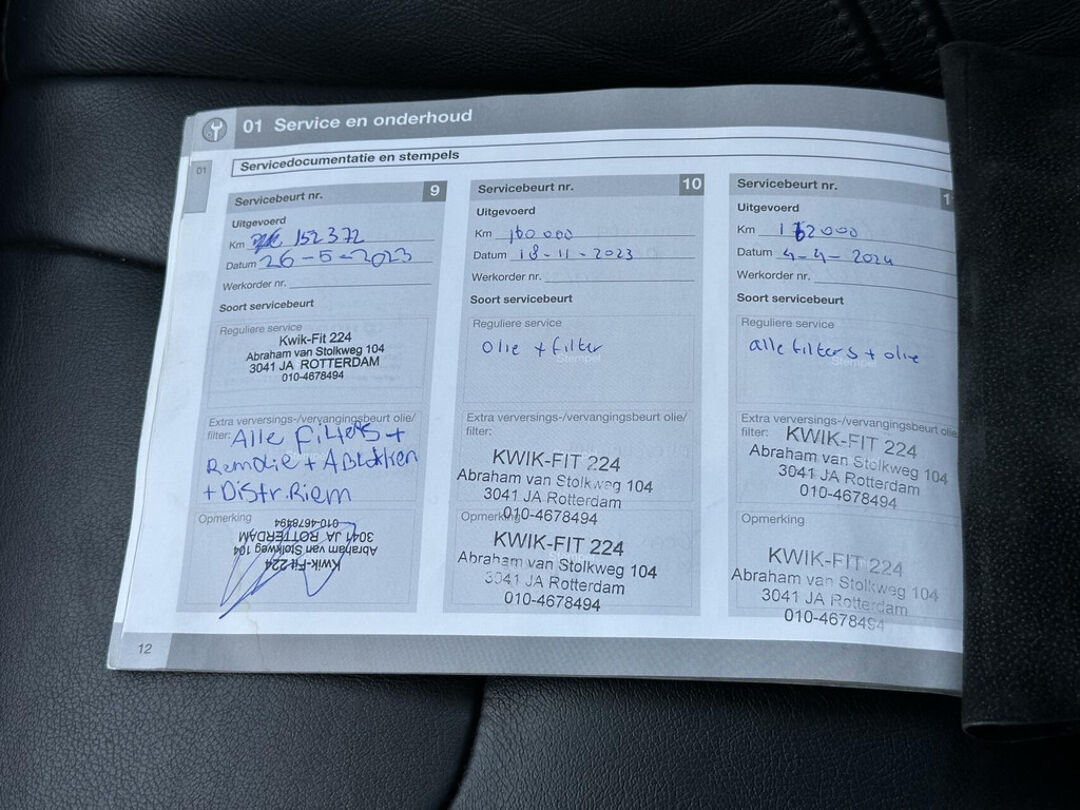 01 Service en onderhoud
01
Servicedocumentatie en stempels
Servicebeurt nr. 9
Uitgevoerd
Km 152372
Datum 26-5-2023
Werkorder nr.
Soort servicebeurt
Reguliere service
Kwik-Fit 224
Abraham van Stolkweg 104
3041 JA ROTTERDAM
010-4678494
Extra verversings-/vervangingsbeurt olie/
filter: Alle Filters +
Remolie + A Blokken
+ Distr. Riem
Opmerking
Kwik-Fit 224
Abraham van Stolkweg 104
3041 JA ROTTERDAM
010-4678494
Servicebeurt nr. 10
Uitgevoerd
Km 160000
Datum 18-11-2023
Werkorder nr.
Soort servicebeurt
Reguliere service
Olie + filter
Stempel
Extra verversings-/vervangingsbeurt olie/
filter:
KWIK-FIT 224
Abraham van Stolkweg 104
3041 JA Rotterdam
010-4678494
Opmerking
KWIK-FIT 224
Abraham van Stolkweg 104
3041 JA Rotterdam
010-4678494
Servicebeurt nr.
Uitgevoerd
Km 162000
Datum 4-4-2024
Werkorder nr.
Soort servicebeurt
Reguliere service
alle filters + olie
Stempel
Extra verversings-/vervangingsbeurt olie
filter:
KWIK-FIT 224
Abraham van Stolkweg 104
3041 JA Rotterdam
010-4678494
Opmerking
KWIK-FIT 224
Abraham van Stolkweg 104
3041 JA Rotterdam
010-4678494
12